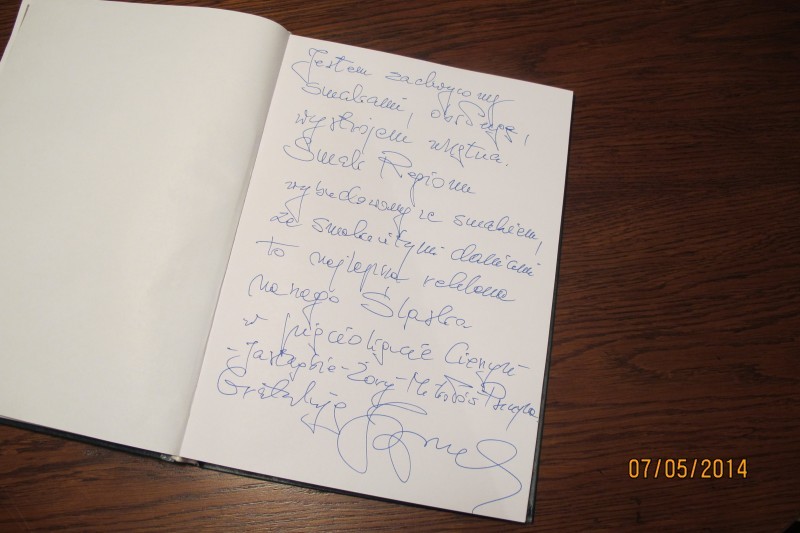 Jestem zachwycony
smakami, obsługą,
wystrojem wnętrza.
Smak Regionu
wybudowany ze smakiem,
ze smakowitymi daniami
to najlepsza reklama
naszego Śląska
w pięcioliguie Cieszyn-
-Jastrzębie-Żory-Mikołów-
Gratuluję
07/05/2014